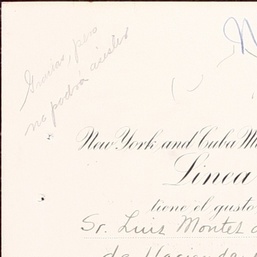 Gracias, pero
no podra asistir
New York and Cuba M
Linea
tiene el gusto
Sr. Luis Montes d
de Hacienda